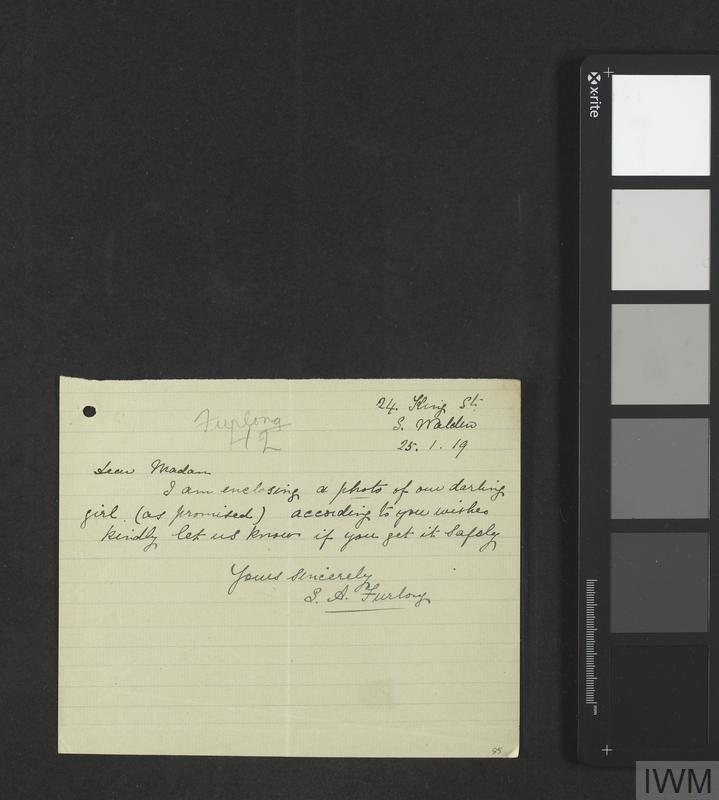 x·rite
24. King St.
S. Walden
25. 1. 19
Furlong
H2
Dear Madam
I am enclosing a photo of our darling
girl (as promised) according to you wishes
kindly let us know if you get it safely
Yours Sincerely
S. A. Furlong
85
mm
IWM